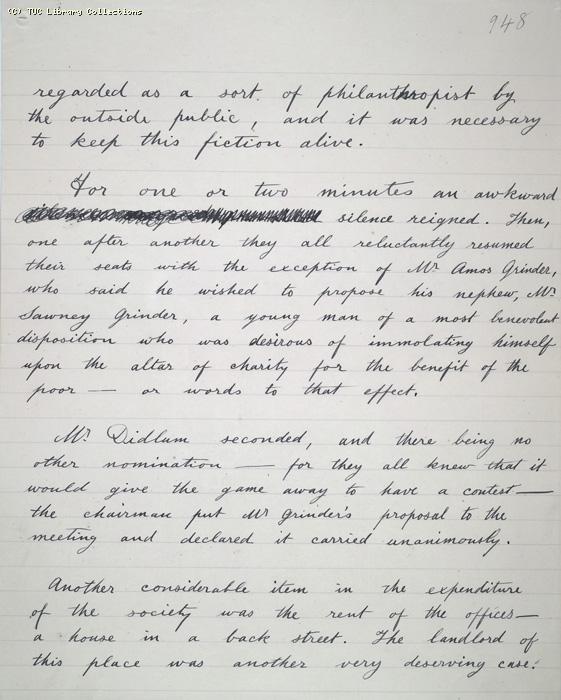 (C) TUC Library Collections
948
regarded as a sort of philanthropist by
the outside public, and it was necessary
to keep this fiction alive.
For one or two minutes an awkward
silence reigned. Then,
one after another they all reluctantly resumed
their seats with the exception of Mr Amos Grinder,
who said he wished to propose his nephew, Mr
Sawney Grinder, a young man of a most benevolent
disposition who was desirous of immolating himself
upon the altar of charity for the benefit of the
poor — or words to that effect.
Mr Didlum seconded, and there being no
other nomination — for they all knew that it
would give the game away to have a contest —
the chairman put Mr Grinder's proposal to the
meeting and declared it carried unanimously.
Another considerable item in the expenditure
of the society was the rent of the offices —
a house in a back street. The landlord of
this place was another very deserving case.